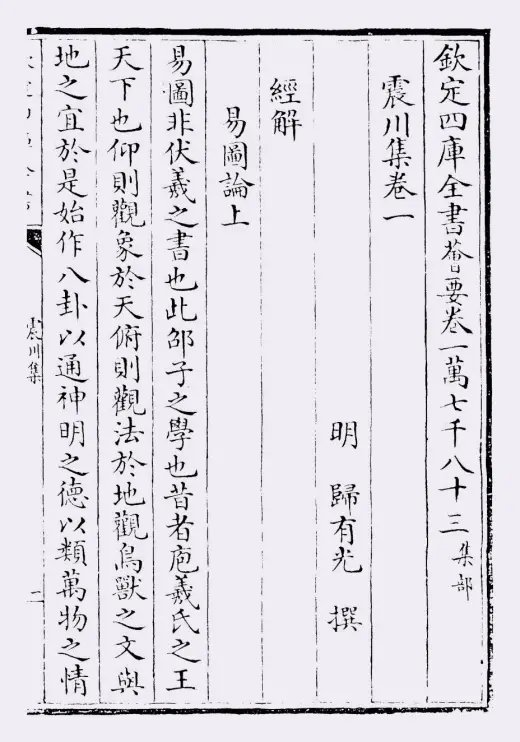 欽定四庫全書薈要卷一萬七千八十三 集部
震川集卷一
明 歸有光 撰
經解
易圖論上
易圖非伏羲之書也此邵子之學也昔者庖羲氏之王
天下也仰則觀象於天俯則觀法於地觀鳥獸之文與
地之宜於是始作八卦以通神明之德以類萬物之情
震川集